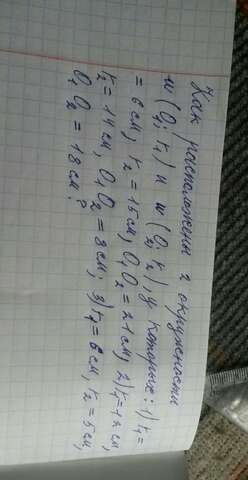 Как расположены 2 окружности
w(O₁; r₁) и w(O₂; r₂), у которых: 1) r₁ =
= 6 см, r₂ = 15 см, O₁O₂ = 21 см; 2) r₁ = 12 см,
r₂ = 14 см, O₁O₂ = 8 см; 3) r₁ = 6 см, r₂ = 5 см,
O₁O₂ = 18 см?